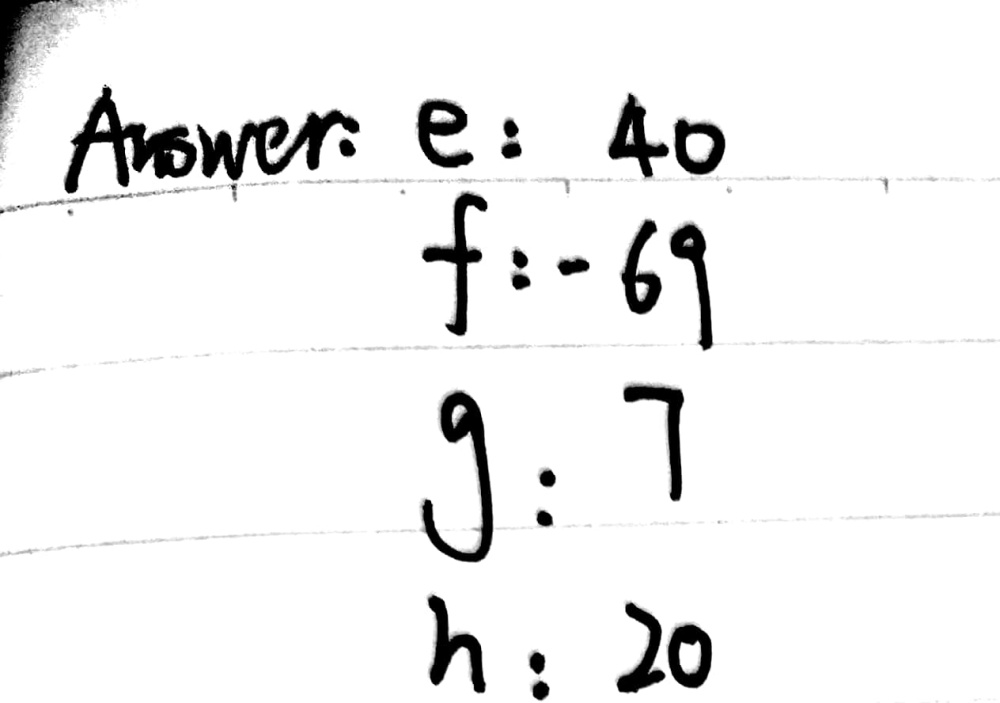 Answer: e: 40
f: -69
g: 7
h: 20